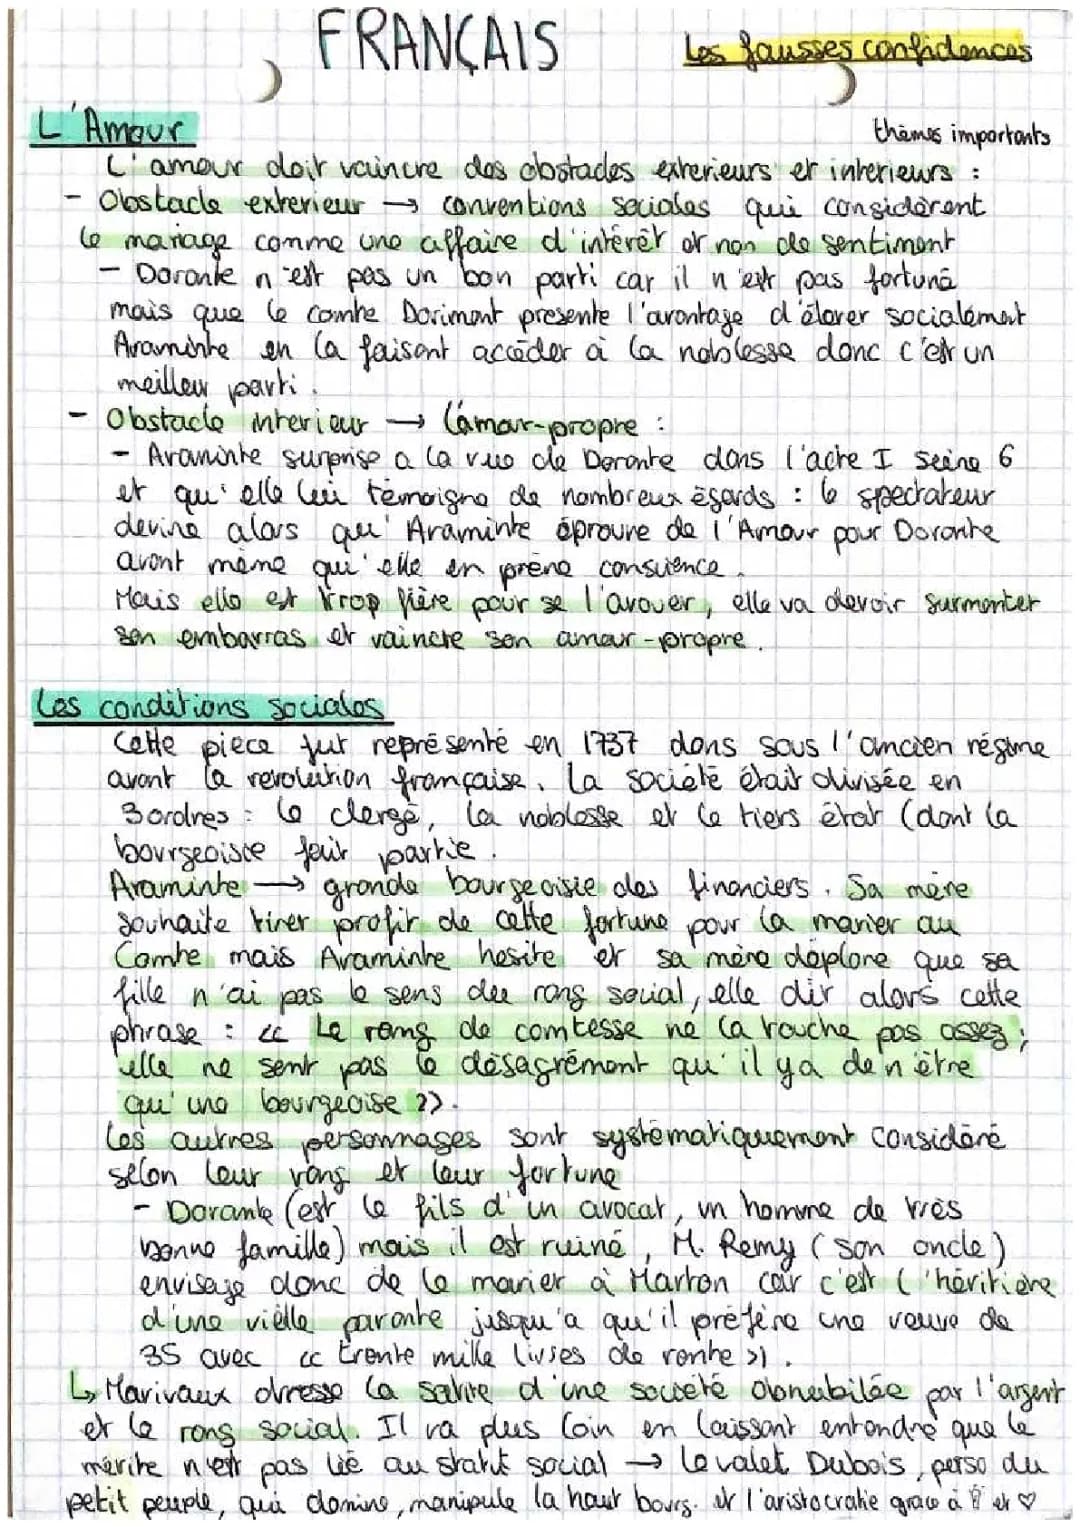 FRANÇAIS
Les fausses confidences
L'Amour
thèmes importants
L'amour doit vaincre des obstacles exterieurs et interieurs :
- Obstacle exterieur → conventions sociales qui considèrent
le mariage comme une affaire d'intérêt et non de sentiment
- Dorante n'est pas un bon parti car il n'est pas fortuné
mais que le comte Dorimont presente l'avantage d'élever socialement
Araminte en la faisant accéder à la noblesse donc c'est un
meilleur parti.
- Obstacle interieur → l'amour-propre :
- Araminte surprise a la vue de Dorante dans l'acte I scène 6
et qu'elle lui témoigne de nombreux égards : le spectateur
devine alors qu'Araminte éprouve de l'Amour pour Dorante
avant même qu'elle en prène conscience.
Mais elle est trop fière pour se l'avouer, elle va devoir surmonter
son embarras et vaincre son amour-propre.
Les conditions sociales
Cette piece fut représenté en 1737 dans sous l'ancien régime
avant la revolution française. La société était divisée en
3 ordres : le clergé, la noblesse et le tiers état (dont la
bourgeoisie fait partie.
Araminte → grande bourgeoisie des financiers. Sa mère
souhaite tirer profit de cette fortune pour la marier au
Comte mais Araminte hesite et sa mère déplore que sa
fille n'ai pas le sens du rang social, elle dit alors cette
phrase : << Le rang de comtesse ne la touche pas assez ;
elle ne sent pas le désagrément qu'il y a de n'être
qu'une bourgeoise >>.
Les autres personnages sont systématiquement considéré
selon leur rang et leur fortune
- Dorante (est le fils d'un avocat, un homme de très
bonne famille) mais il est ruiné, M. Remy (son oncle)
envisage donc de le marier à Marton car c'est l'héritière
d'une vièlle parente jusqu'a qu'il préfère une veuve de
35 avec << trente mille livres de rente >>.
↳ Marivaux dresse la satire d'une société obnubilée par l'argent
et le rang social. Il va plus loin en laissant entendre que le
mérite n'est pas lié au statut social → le valet Dubois, perso du
petit peuple, qui domine, manipule la haut bourg. et l'aristocratie grace à et ♡